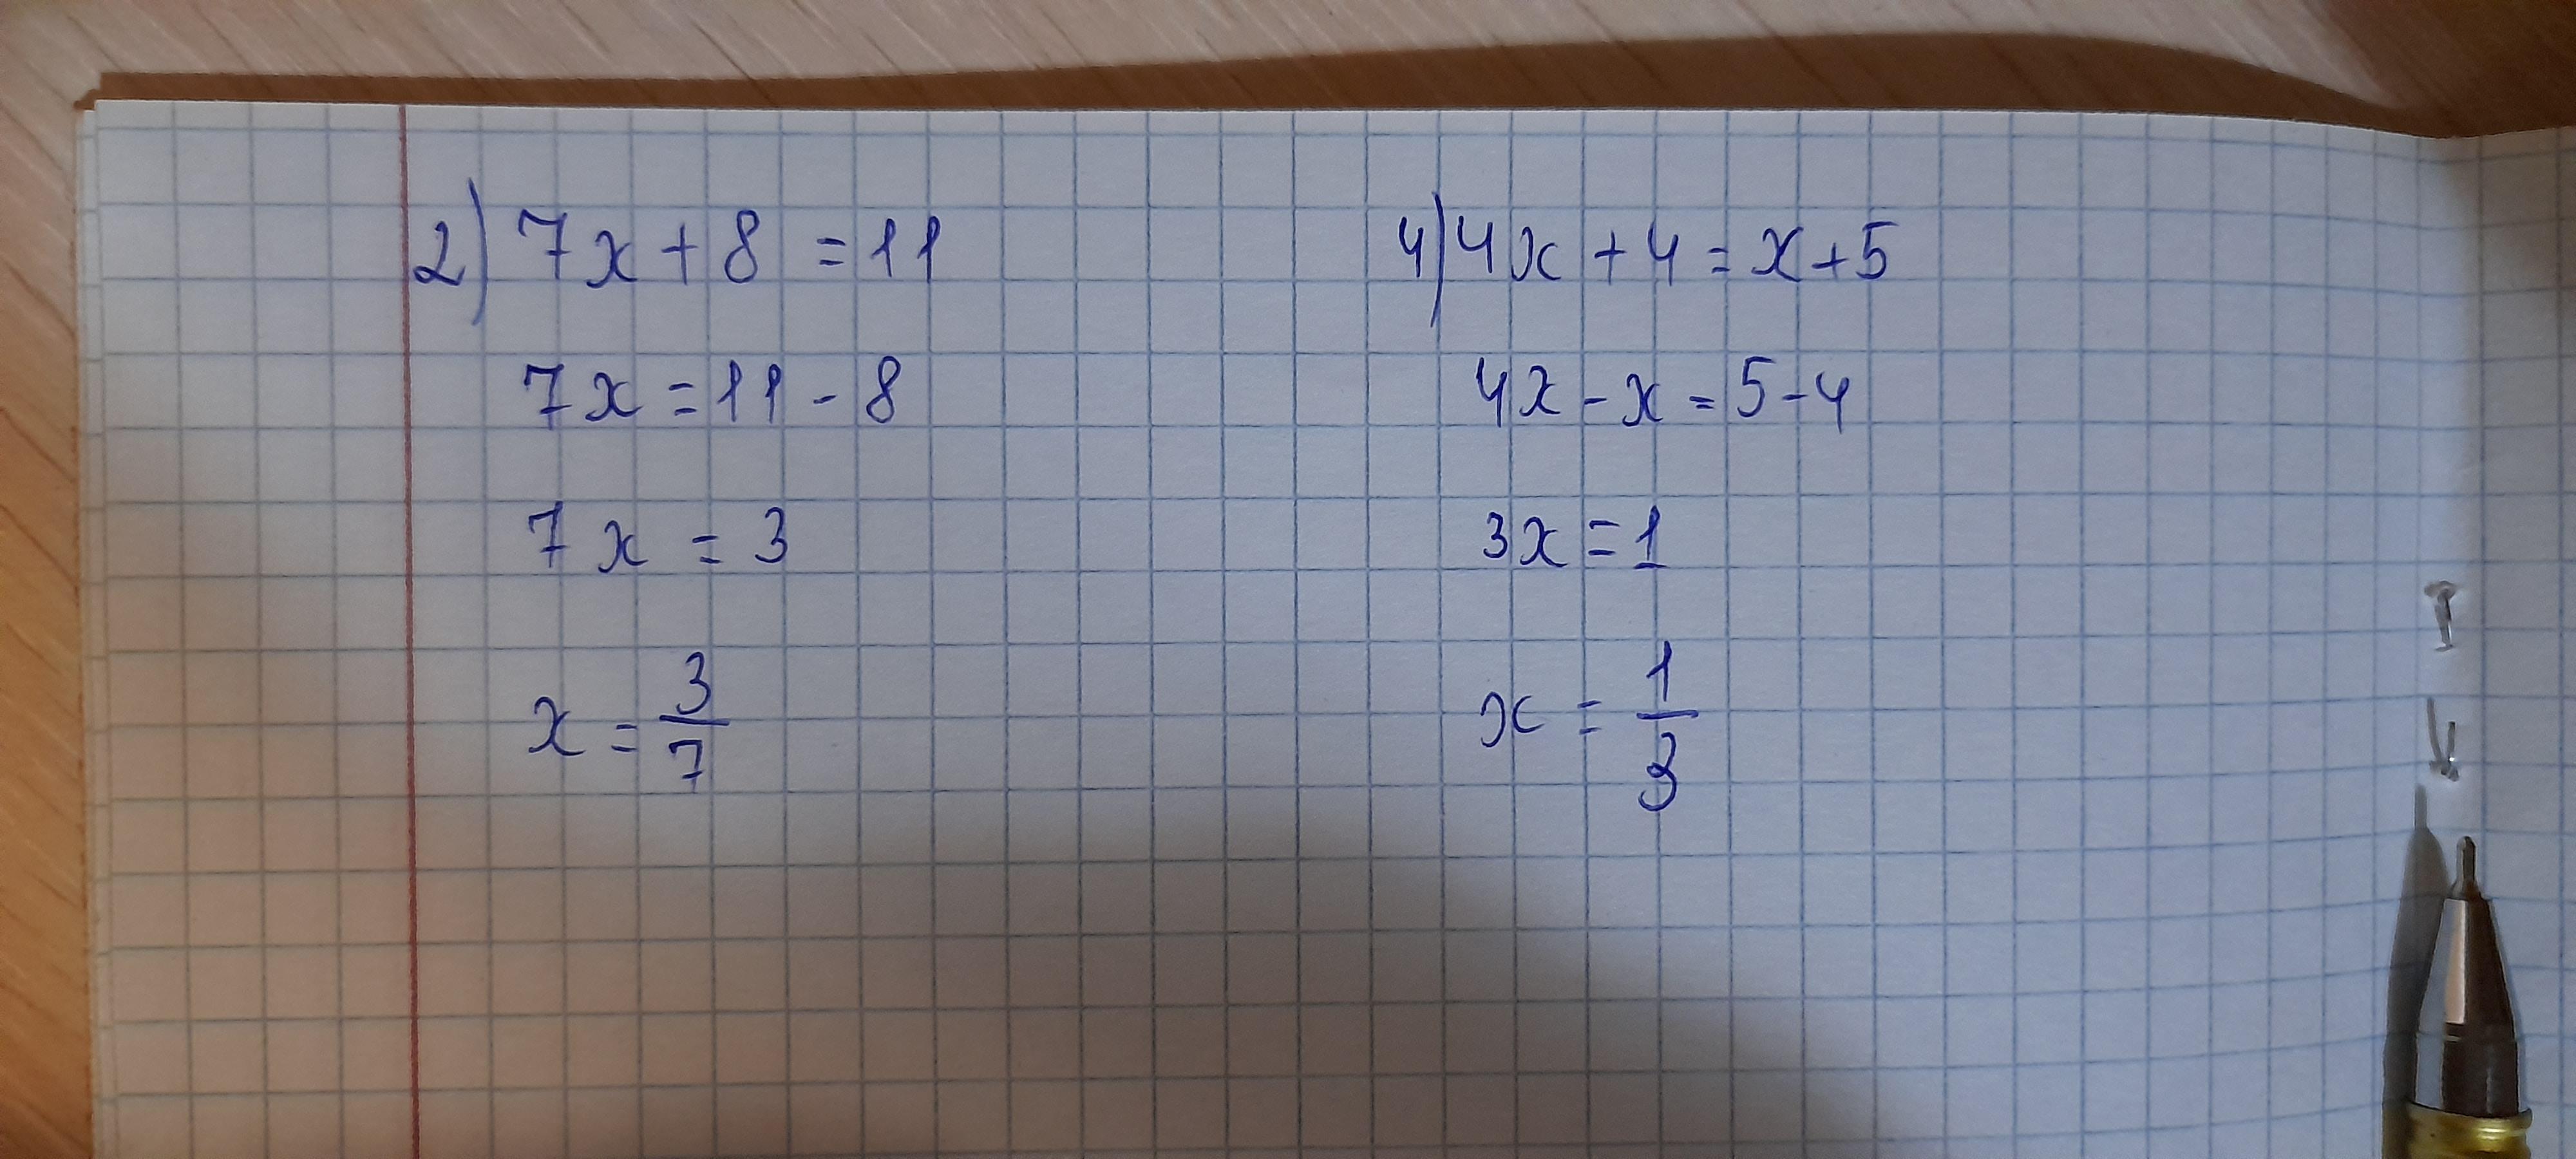 2) 7x + 8 = 11
7x = 11 - 8
7x = 3
x = 3/7
4) 4x + 4 = x + 5
4x - x = 5 - 4
3x = 1
x = 1/3